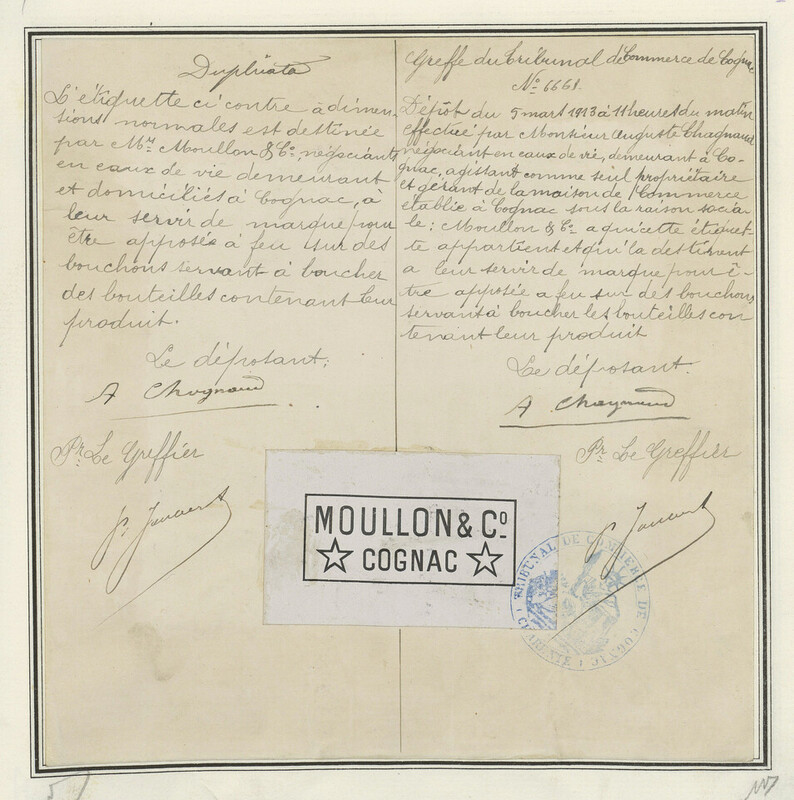 Duplicata
L'étiquette ci contre à dimen-
sions normales est destinée
par Mrs Moullon & Co, négociants
en eaux de vie demeurant
et domiciliés à Cognac, à
leur servir de marque pour
être apposée à feu sur des
bouchons servant à boucher
des bouteilles contenant leur
produit.
Le déposant;
A Chagnaud
Pr. Le Greffier
Greffe du Tribunal de Commerce de Cognac
No 6661.
Dépôt du 5 mars 1913 à 11 heures du matin
effectué par Monsieur Auguste Chagnaud
négociant en eaux de vie, demeurant à Co-
gnac, agissant comme seul propriétaire
et gérant de la maison de Commerce
établie à Cognac sous la raison socia-
le: Moullon & Co a qui cette étiquet-
te appartient et qui la destinent
a leur servir de marque pour ê-
tre apposée a feu sur des bouchons
servant à boucher les bouteilles con
tenant leur produit
Le déposant.
A Chagnaud
Pr. Le Greffier
MOULLON & Co
COGNAC
TRIBUNAL DE COMMERCE DE COGNAC
CHARENTE